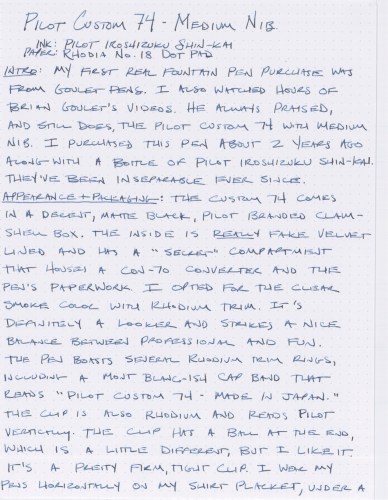 PILOT CUSTOM 74 - MEDIUM NIB
INK: PILOT IROSHIZUKU SHIN-KAI
PAPER: RHODIA NO. 18 DOT PAD
INTRO: MY FIRST REAL FOUNTAIN PEN PURCHASE WAS
FROM GOULET PENS. I ALSO WATCHED HOURS OF
BRIAN GOULET'S VIDEOS. HE ALWAYS PRAISED,
AND STILL DOES, THE PILOT CUSTOM 74 WITH MEDIUM
NIB. I PURCHASED THIS PEN ABOUT 2 YEARS AGO
ALONG WITH A BOTTLE OF PILOT IROSHIZUKU SHIN-KAI.
THEY'VE BEEN INSEPARABLE EVER SINCE.
APPEARANCE + PACKAGING: THE CUSTOM 74 COMES
IN A DECENT, MATTE BLACK, PILOT BRANDED CLAM-
SHELL BOX. THE INSIDE IS REALLY FAKE VELVET
LINED AND HAS A "SECRET" COMPARTMENT
THAT HOUSES A CON-70 CONVERTER AND THE
PEN'S PAPERWORK. I OPTED FOR THE CLEAR
SMOKE COLOR WITH RHODIUM TRIM. IT'S
DEFINITELY A LOOKER AND STRIKES A NICE
BALANCE BETWEEN PROFESSIONAL AND FUN.
THE PEN BOASTS SEVERAL RHODIUM TRIM RINGS,
INCLUDING A MONT BLANC-ISH CAP BAND THAT
READS "PILOT CUSTOM 74 - MADE IN JAPAN."
THE CLIP IS ALSO RHODIUM AND READS PILOT
VERTICALLY. THE CLIP HAS A BALL AT THE END,
WHICH IS A LITTLE DIFFERENT, BUT I LIKE IT.
IT'S A PRETTY FIRM, TIGHT CLIP. I WEAR MY
PENS HORIZONTALLY ON MY SHIRT PLACKET, UNDER A